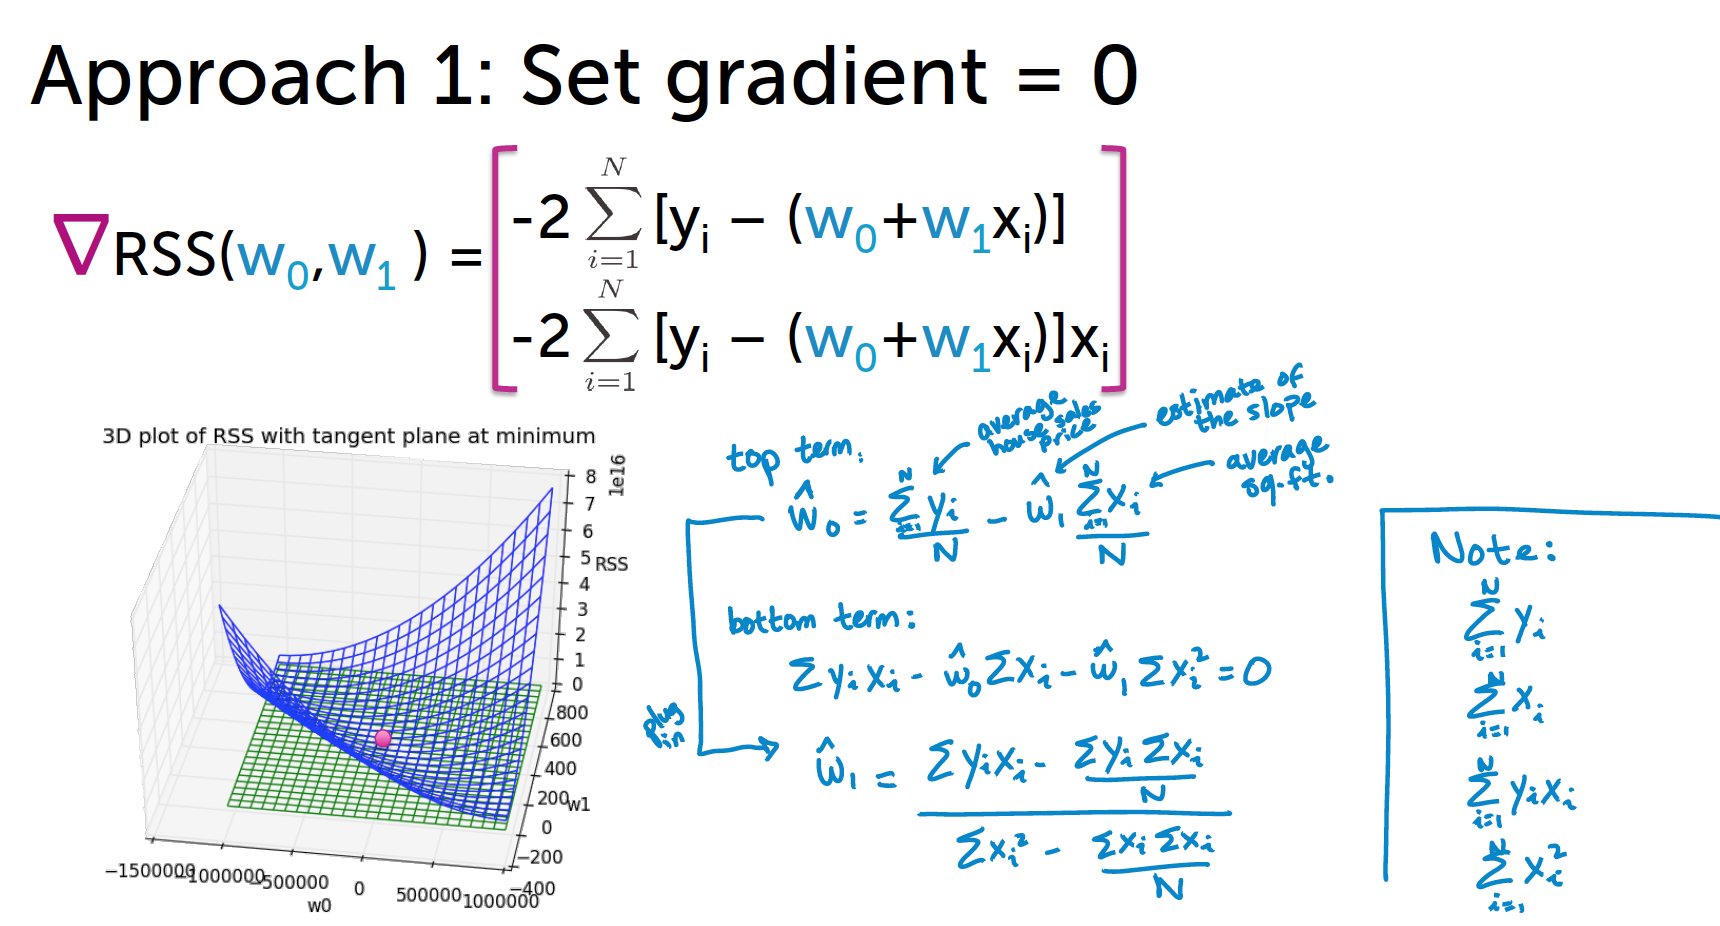 Approach 1: Set gradient = 0
∇RSS(w₀,w₁ ) =
-2 ∑_{i=1}^{N} [yᵢ – (w₀+w₁xᵢ)]
-2 ∑_{i=1}^{N} [yᵢ – (w₀+w₁xᵢ)]xᵢ
3D plot of RSS with tangent plane at minimum
1e16
8
7
6
5
4
3
2
1
0
RSS
800
600
400
200
0
−200
−400
w1
−1500000
−1000000
−500000
0
500000
1000000
w0
top term:
average
house sales
price
estimate of
the slope
average
sq.ft.
ŵ₀ = ∑_{i=1}^{N} yᵢ / N - ŵ₁ ∑_{i=1}^{N} xᵢ / N
bottom term:
∑yᵢxᵢ - ŵ₀∑xᵢ - ŵ₁∑xᵢ² = 0
plug
in
ŵ₁ = (∑yᵢxᵢ - ∑yᵢ∑xᵢ / N) / (∑xᵢ² - ∑xᵢ∑xᵢ / N)
Note:
∑_{i=1}^{N} yᵢ
∑_{i=1}^{N} xᵢ
∑_{i=1}^{N} yᵢxᵢ
∑_{i=1}^{N} xᵢ²